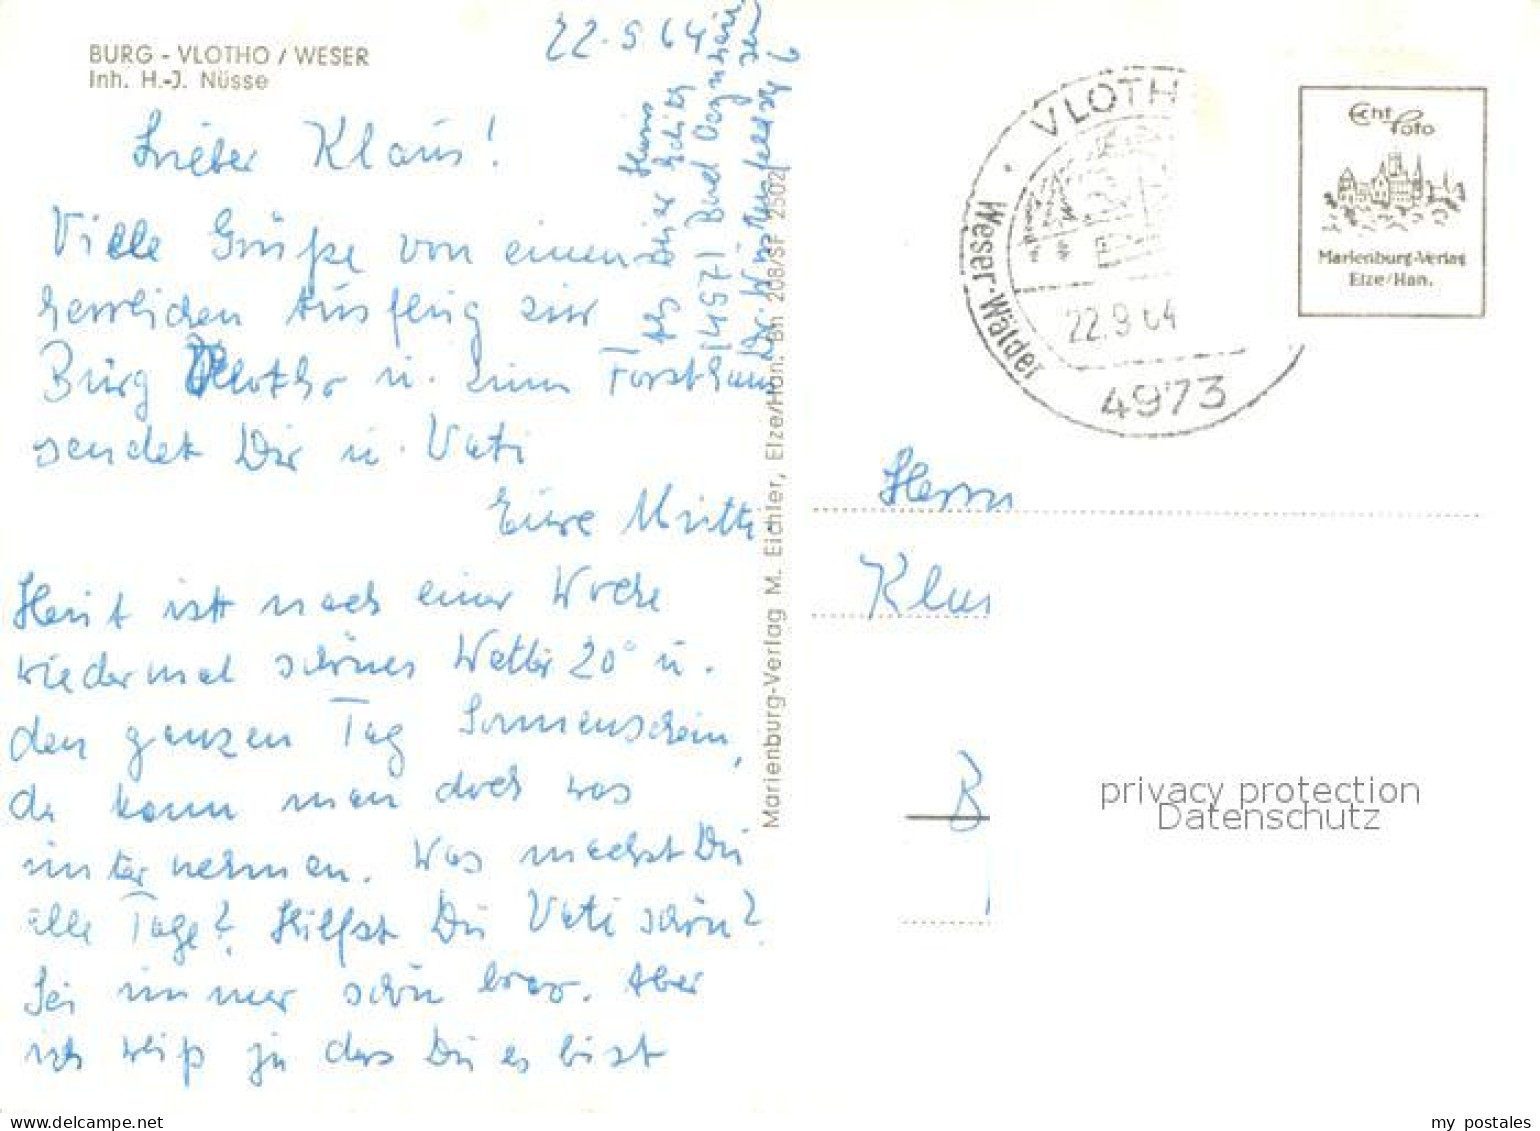 BURG - VLOTHO / WESER
Inh. H.-J. Nüsse
22.9.64
Lieber Klaus!
Viele Grüße von einem
herrlichen Ausflug zur
Burg Vlotho u. einem Forsthaus
sendet Dir u. Vati
Eure Mutti
Heut ist nach einer Woche
wiedermal schönes Wetter 20° u.
den ganzen Tag Sonnenschein,
da kann man doch was
unternehmen. Was machst Du
alle Tage? Hilfst Du Vati schön?
Sei immer schön brav. Aber
ich weiß ja das Du es bist
Abs
Haus
4971 Bad Oeynhausen
6
Marienburg-Verlag M. Eichler, Elze/Han. Bn 208/SF 2502
VLOTH
Weser-Wälder
22.9.64
4973
Echt Foto
Marienburg-Verlag
Elze/Han.
Herrn
Klaus
B
privacy protection
Datenschutz
my postales